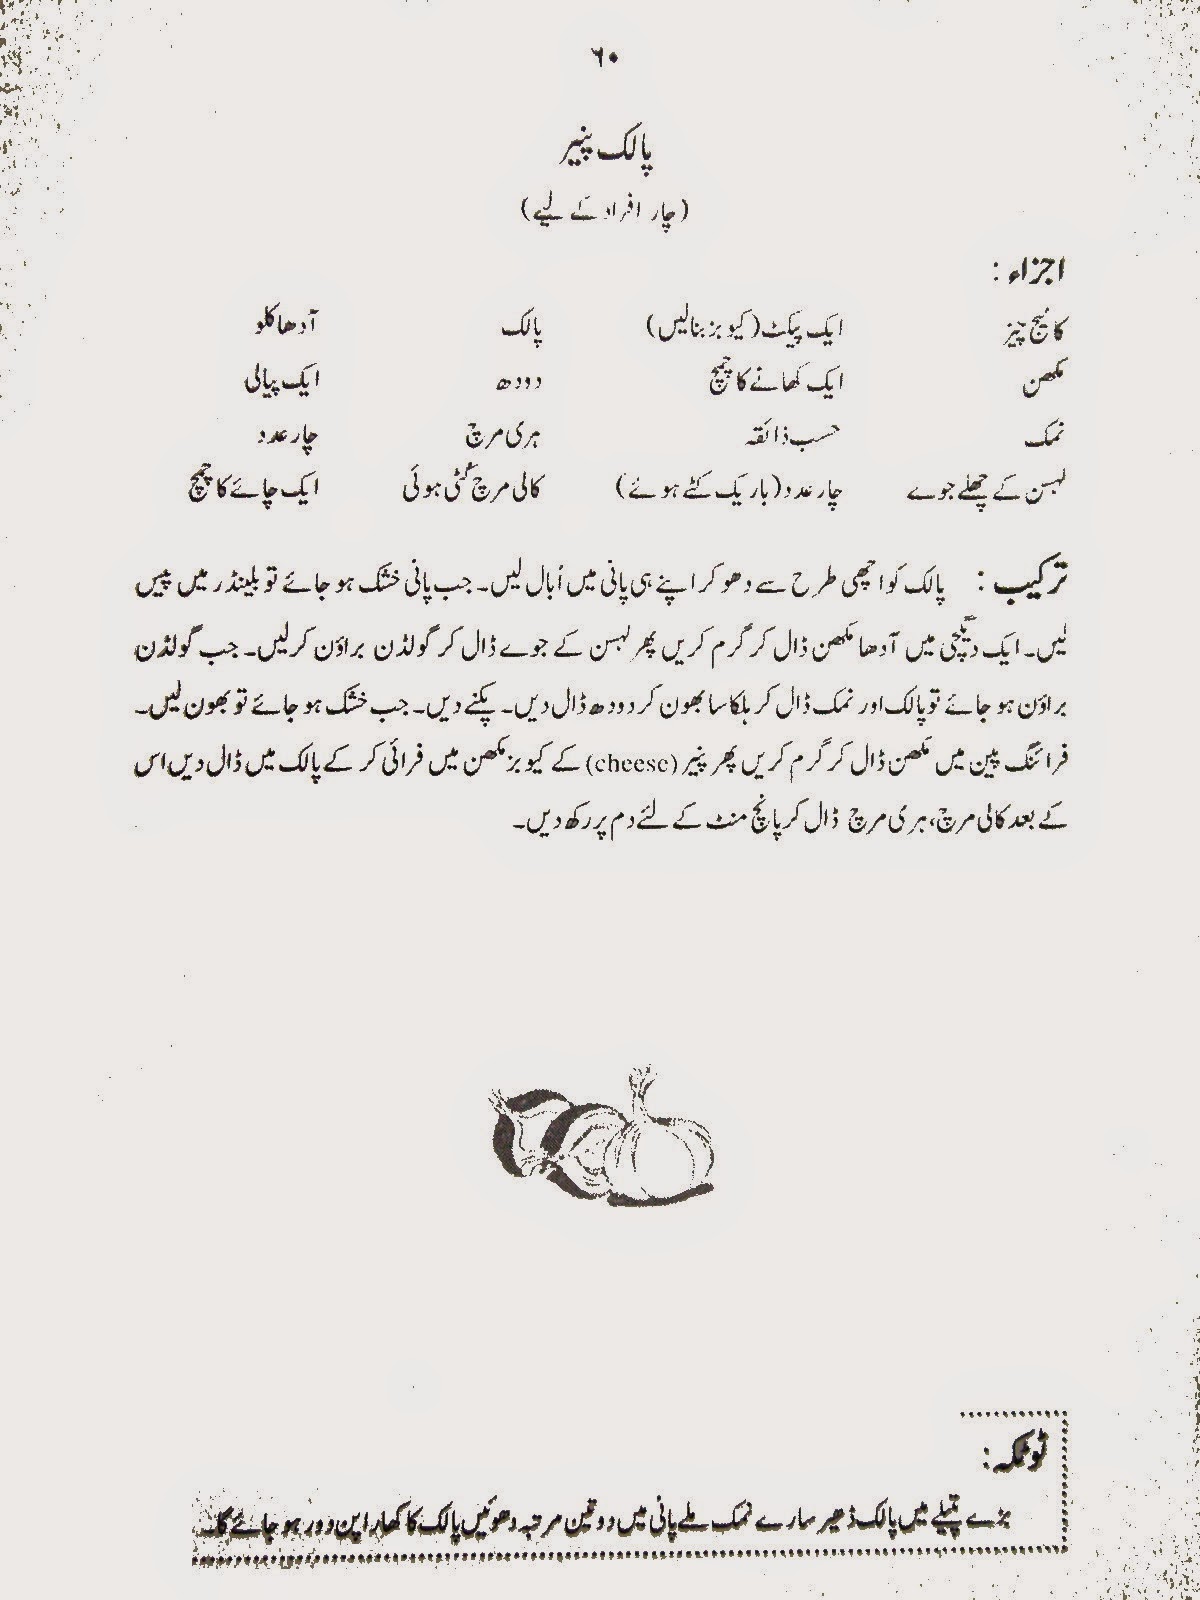 ۶۰
پالک پنیر
(چار افراد کے لیے)
اجزاء :
کاٹیج چیز ایک پیکٹ (کیوبز بنالیں) پالک آدھا کلو
مکھن ایک کھانے کا چمچ دودھ ایک پیالی
نمک حسب ذائقہ ہری مرچ چار عدد
لہسن کے چھلے جوے چار عدد (باریک کٹے ہوئے) کالی مرچ کُٹی ہوئی ایک چائے کا چمچ
ترکیب : پالک کو اچھی طرح سے دھو کر اپنے ہی پانی میں اُبال لیں۔ جب پانی خشک ہو جائے تو بلینڈر میں پیس
لیں۔ ایک دیگچی میں آدھا مکھن ڈال کر گرم کریں پھر لہسن کے جوے ڈال کر گولڈن براؤن کرلیں۔ جب گولڈن
براؤن ہو جائے تو پالک اور نمک ڈال کر ہلکا سا بھون کر دودھ ڈال دیں۔ پکنے دیں۔ جب خشک ہو جائے تو بھون لیں۔
فرائنگ پین میں مکھن ڈال کر گرم کریں پھر پنیر (cheese) کے کیوبز مکھن میں فرائی کر کے پالک میں ڈال دیں اس
کے بعد کالی مرچ، ہری مرچ ڈال کر پانچ منٹ کے لئے دم پر رکھ دیں۔
ٹوٹکہ :
بڑے پتیلے میں پالک ڈھیر سارے نمک ملے پانی میں دو تین مرتبہ دھوئیں پالک کا کھارا پن دور ہو جائے گا۔